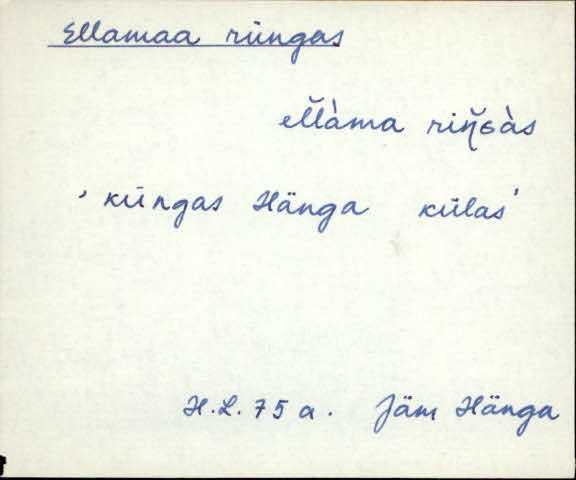 Ellamaa rüngas
el̆l̆àma riŋ̆ɢàs
'küngas Hänga külas'
H.L. 75 a. Jäm Hänga